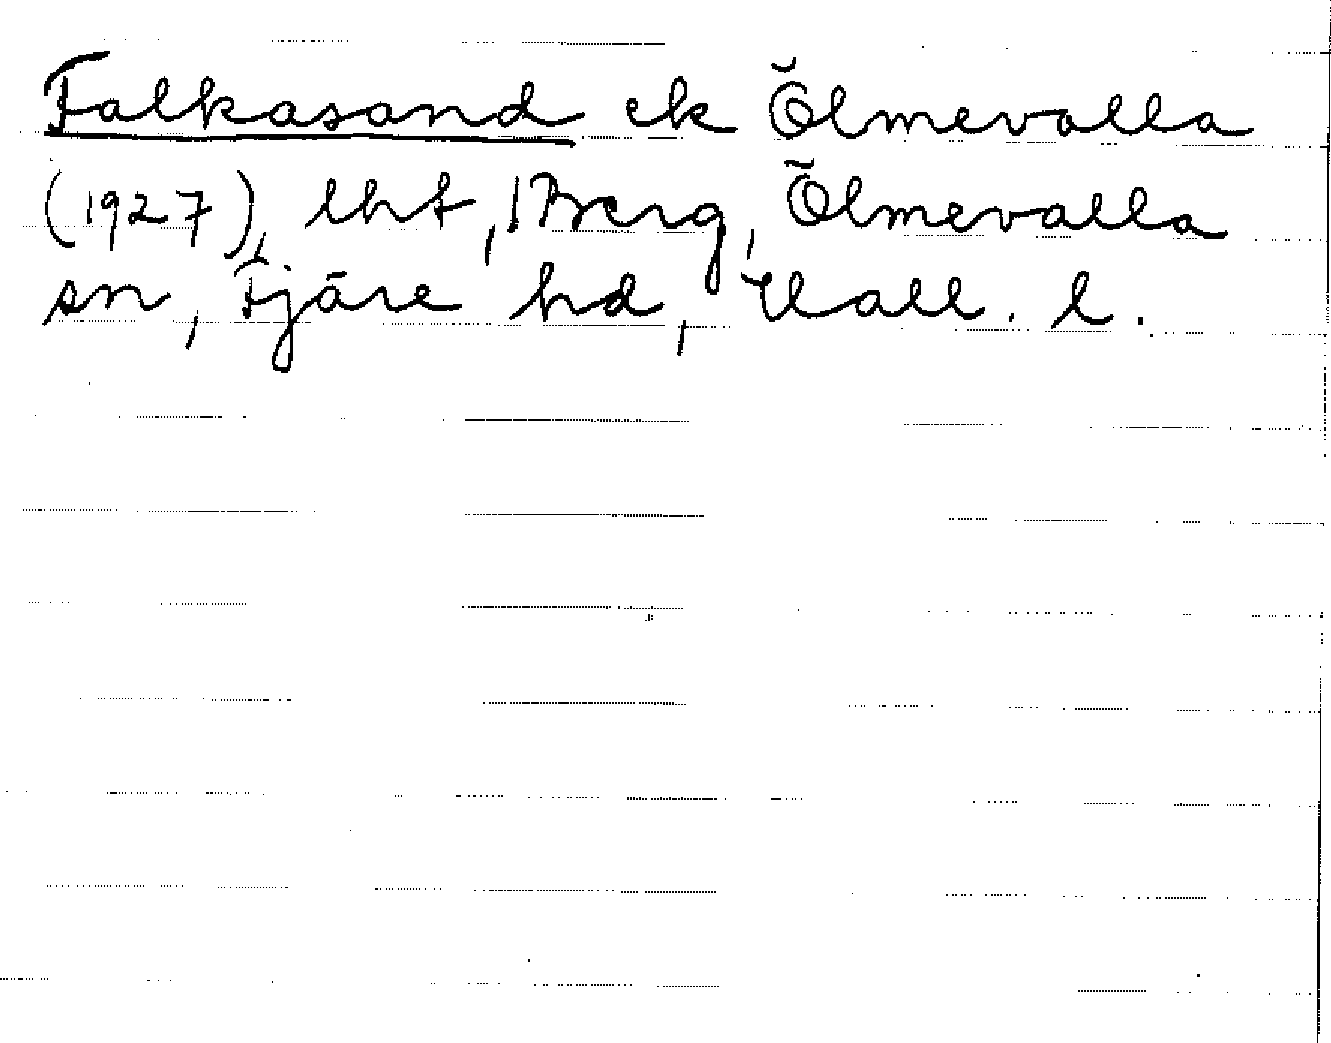 Falkasand ek Ölmevalla
(1927), lht, Berg, Ölmevalla
sn, Fjäre hd, Hall. l.